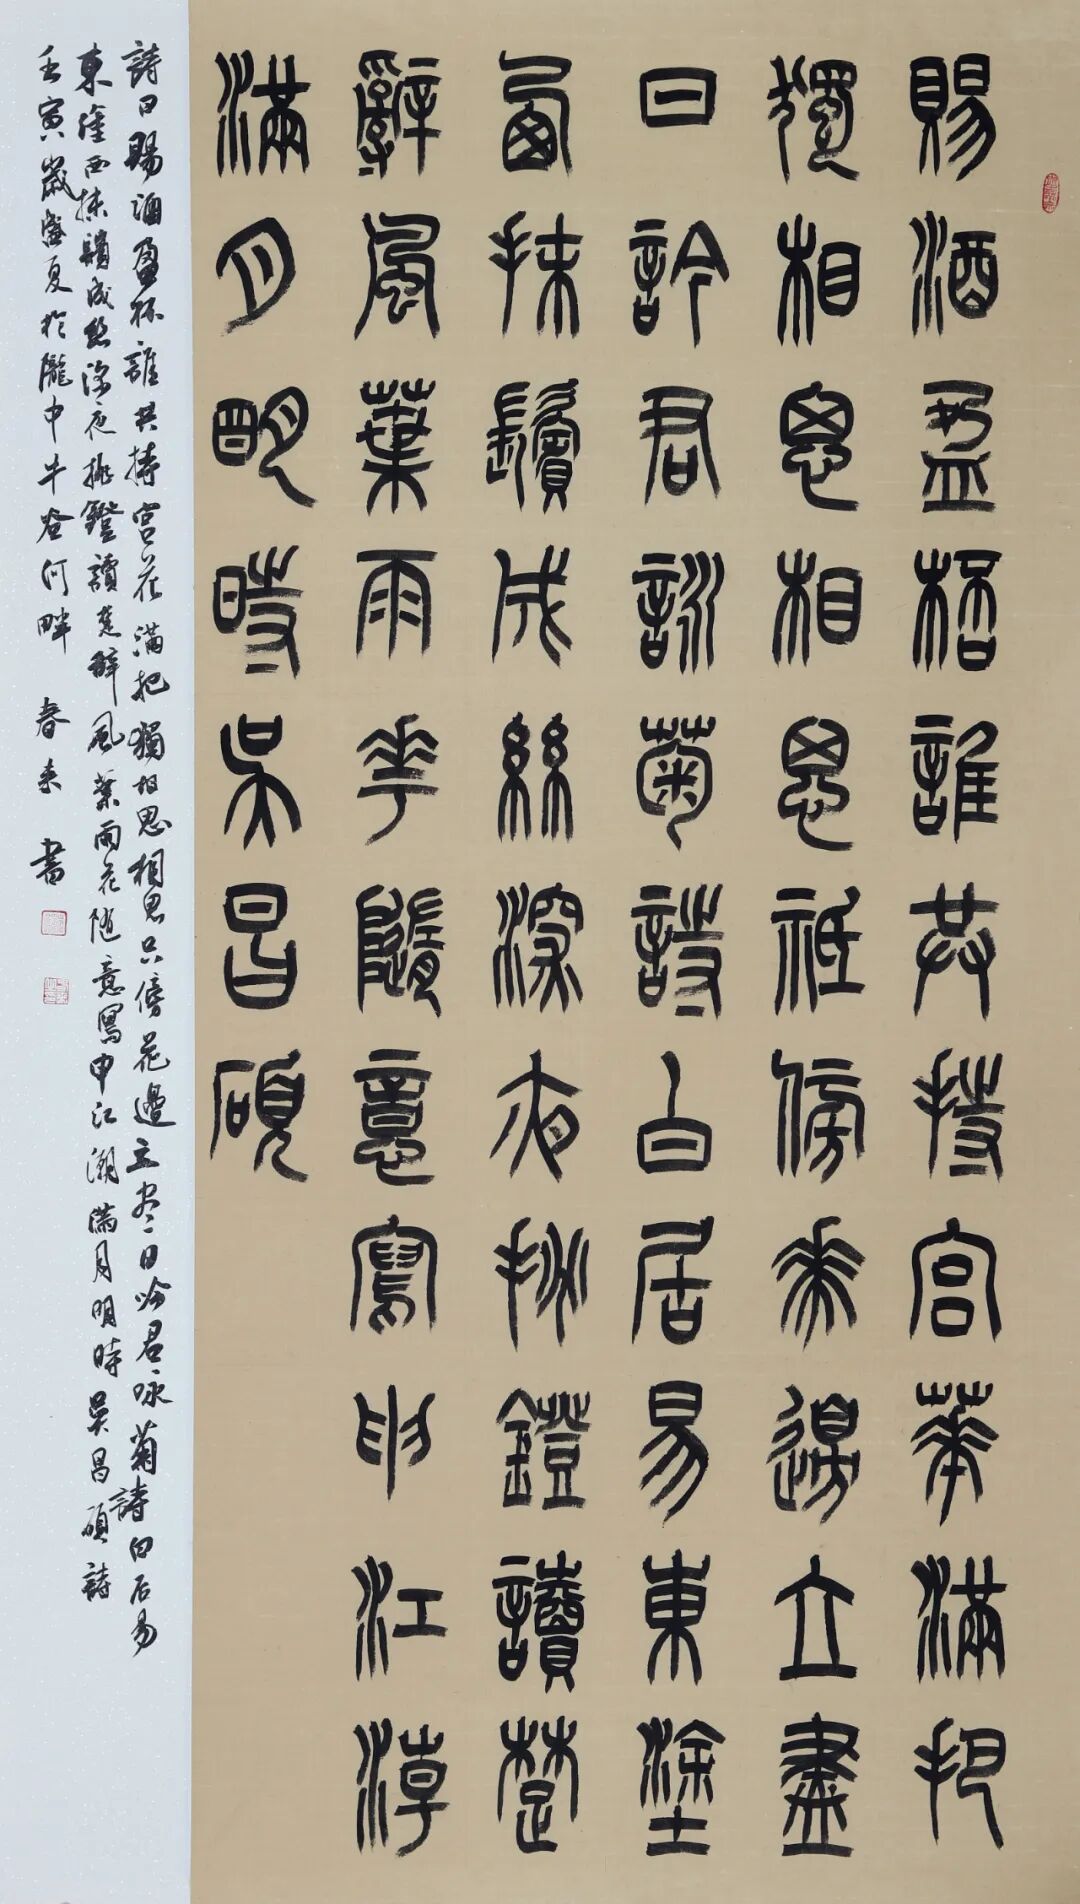 賜酒盈桮誰共持宮華滿把
獨相思相思祇傍華邊立盡
日訡君詠菊詩白居易東塗
西抹鬢成絲深夜挑鐙讀楚
辭風葉雨華隨意寫申江淖
滿月明時吳昌碩
詩曰賜酒盈杯誰共持宮花滿把獨相思相思只傍花邊立尽日吟君咏菊詩白居易
東塗西抹鬢成絲深夜挑鐙讀楚辭風葉雨花隨意寫申江潮滿月明時吳昌碩詩
壬寅歲盛夏於隴中牛谷河畔 春來 書